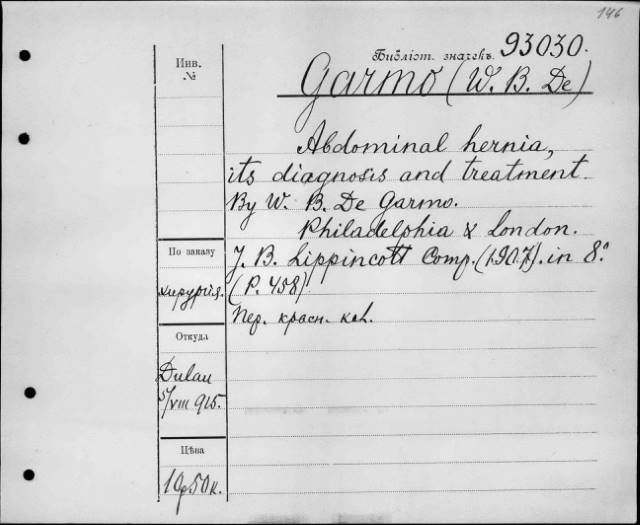 146
Библіот. значекъ 93030.
Garmo (W. B. De)
Инв.
№
Abdominal hernia,
its diagnosis and treatment
By W. B. De Garmo.
Philadelphia & London.
По заказу
J. B. Lippincott Comp. (1907). in 8.°
хирургія.
(P. 458)
Пер. красн. кол.
Откуда
Dulau
5/VIII 915.
Цѣна
10р50к.